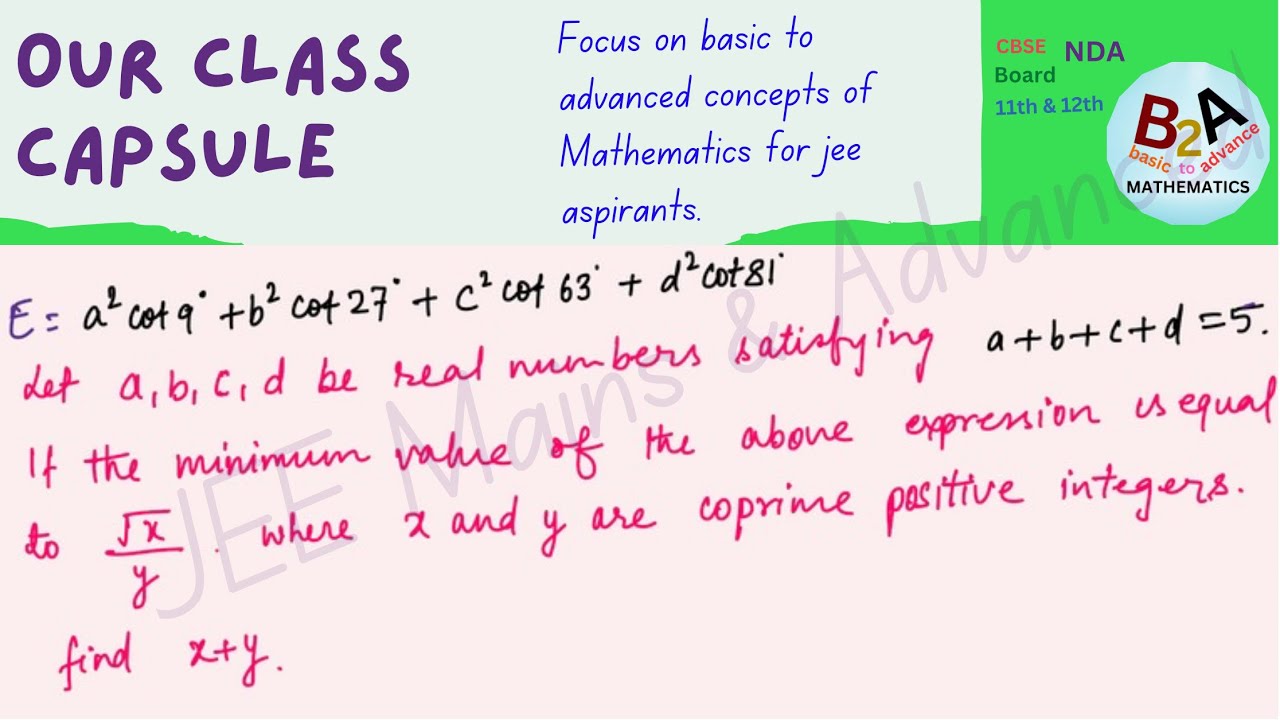 OUR CLASS
CAPSULE
Focus on basic to
advanced concepts of
Mathematics for jee
aspirants.
CBSE NDA
Board
11th & 12th
B2A
basic to advance
MATHEMATICS
E = a² cot 9° + b² cot 27° + c² cot 63° + d² cot 81°
Let a, b, c, d be real numbers satisfying a+b+c+d = 5.
If the minimum value of the above expression is equal
to √x/y . where x and y are coprime positive integers.
find x+y.
JEE Mains & Advanced